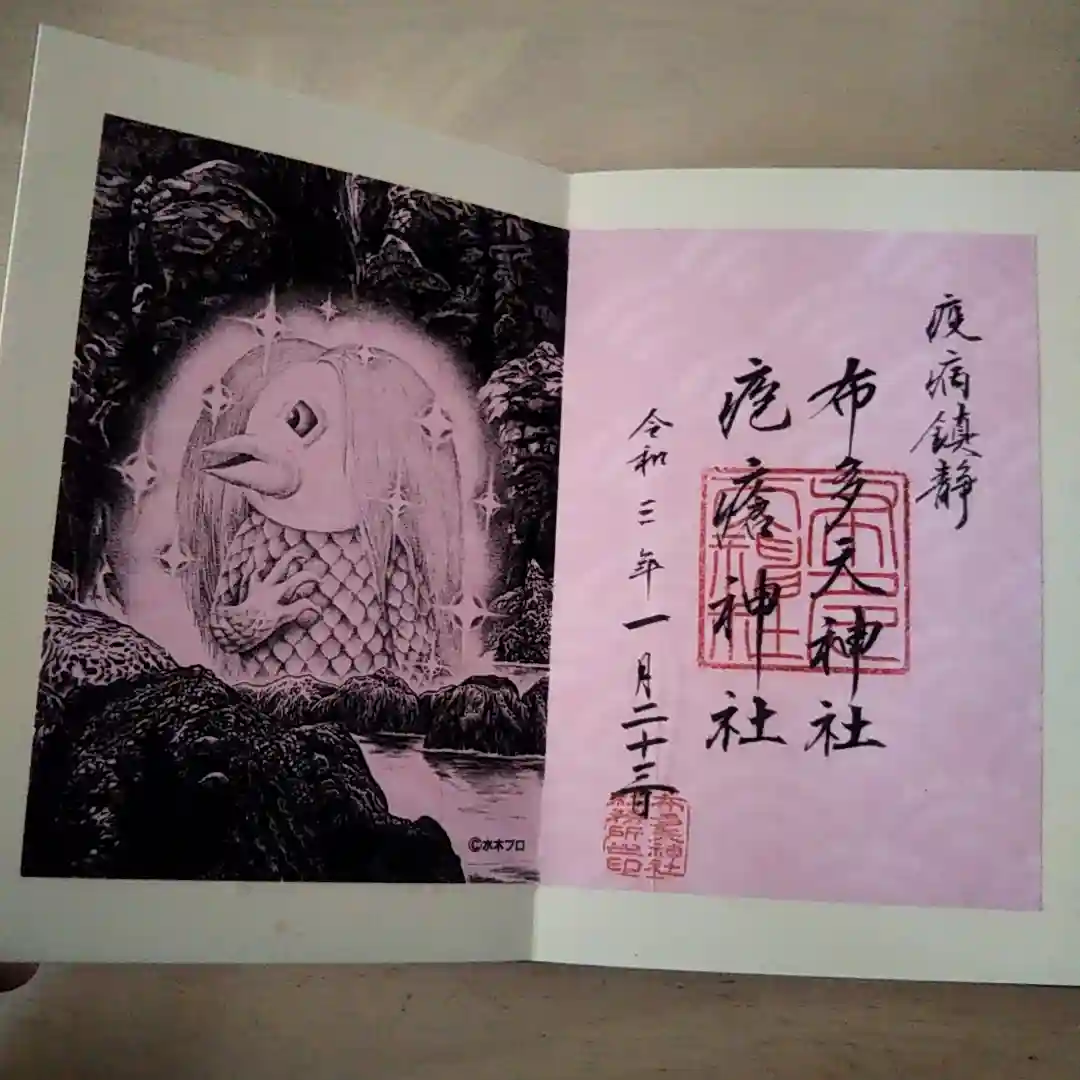 疫病鎮静
布多天神社
疱瘡神社
令和三年一月二十三日
布多天神社
社務所之印
©水木プロ